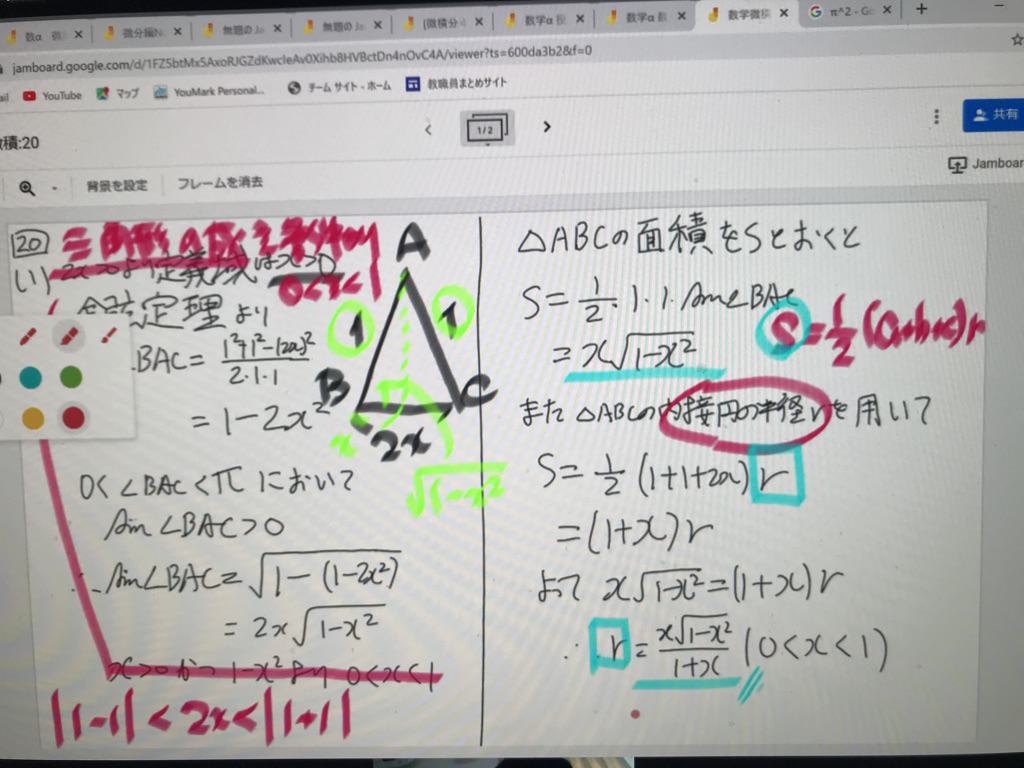 数学微積
π^2 - Go
jamboard.google.com/d/1FZ5btMx5AxoRJGZdKwcIeAv0Xihb8HVBctDn4nOvC4A/viewer?ts=600da3b2&f=0
YouTube マップ YouMark Personal... チーム サイト - ホーム 教職員まとめサイト
1/2
共有
積:20
Jamboar
背景を設定 フレームを消去
20
(1) 2x>0より定義域はx>0
0<x<1
定理より
BAC = (1²+1²-(2x)²)/(2・1・1)
= 1-2x²
A
1 1
B C
2x
x
√1-x²
0<∠BAC<π において
sin∠BAC>0
∴ sin∠BAC = √1-(1-2x²)
= 2x√1-x²
x>0かつ 1-x² より 0<x<1
|1-1| < 2x < |1+1|
△ABCの面積をSとおくと
S = 1/2・1・1・sin∠BAC
= x√1-x²
S = 1/2(a+b+c)r
また △ABCの内接円の半径rを用いて
S = 1/2 (1+1+2x) r
= (1+x) r
よって x√1-x² = (1+x) r
∴ r = x√1-x²/1+x (0<x<1)